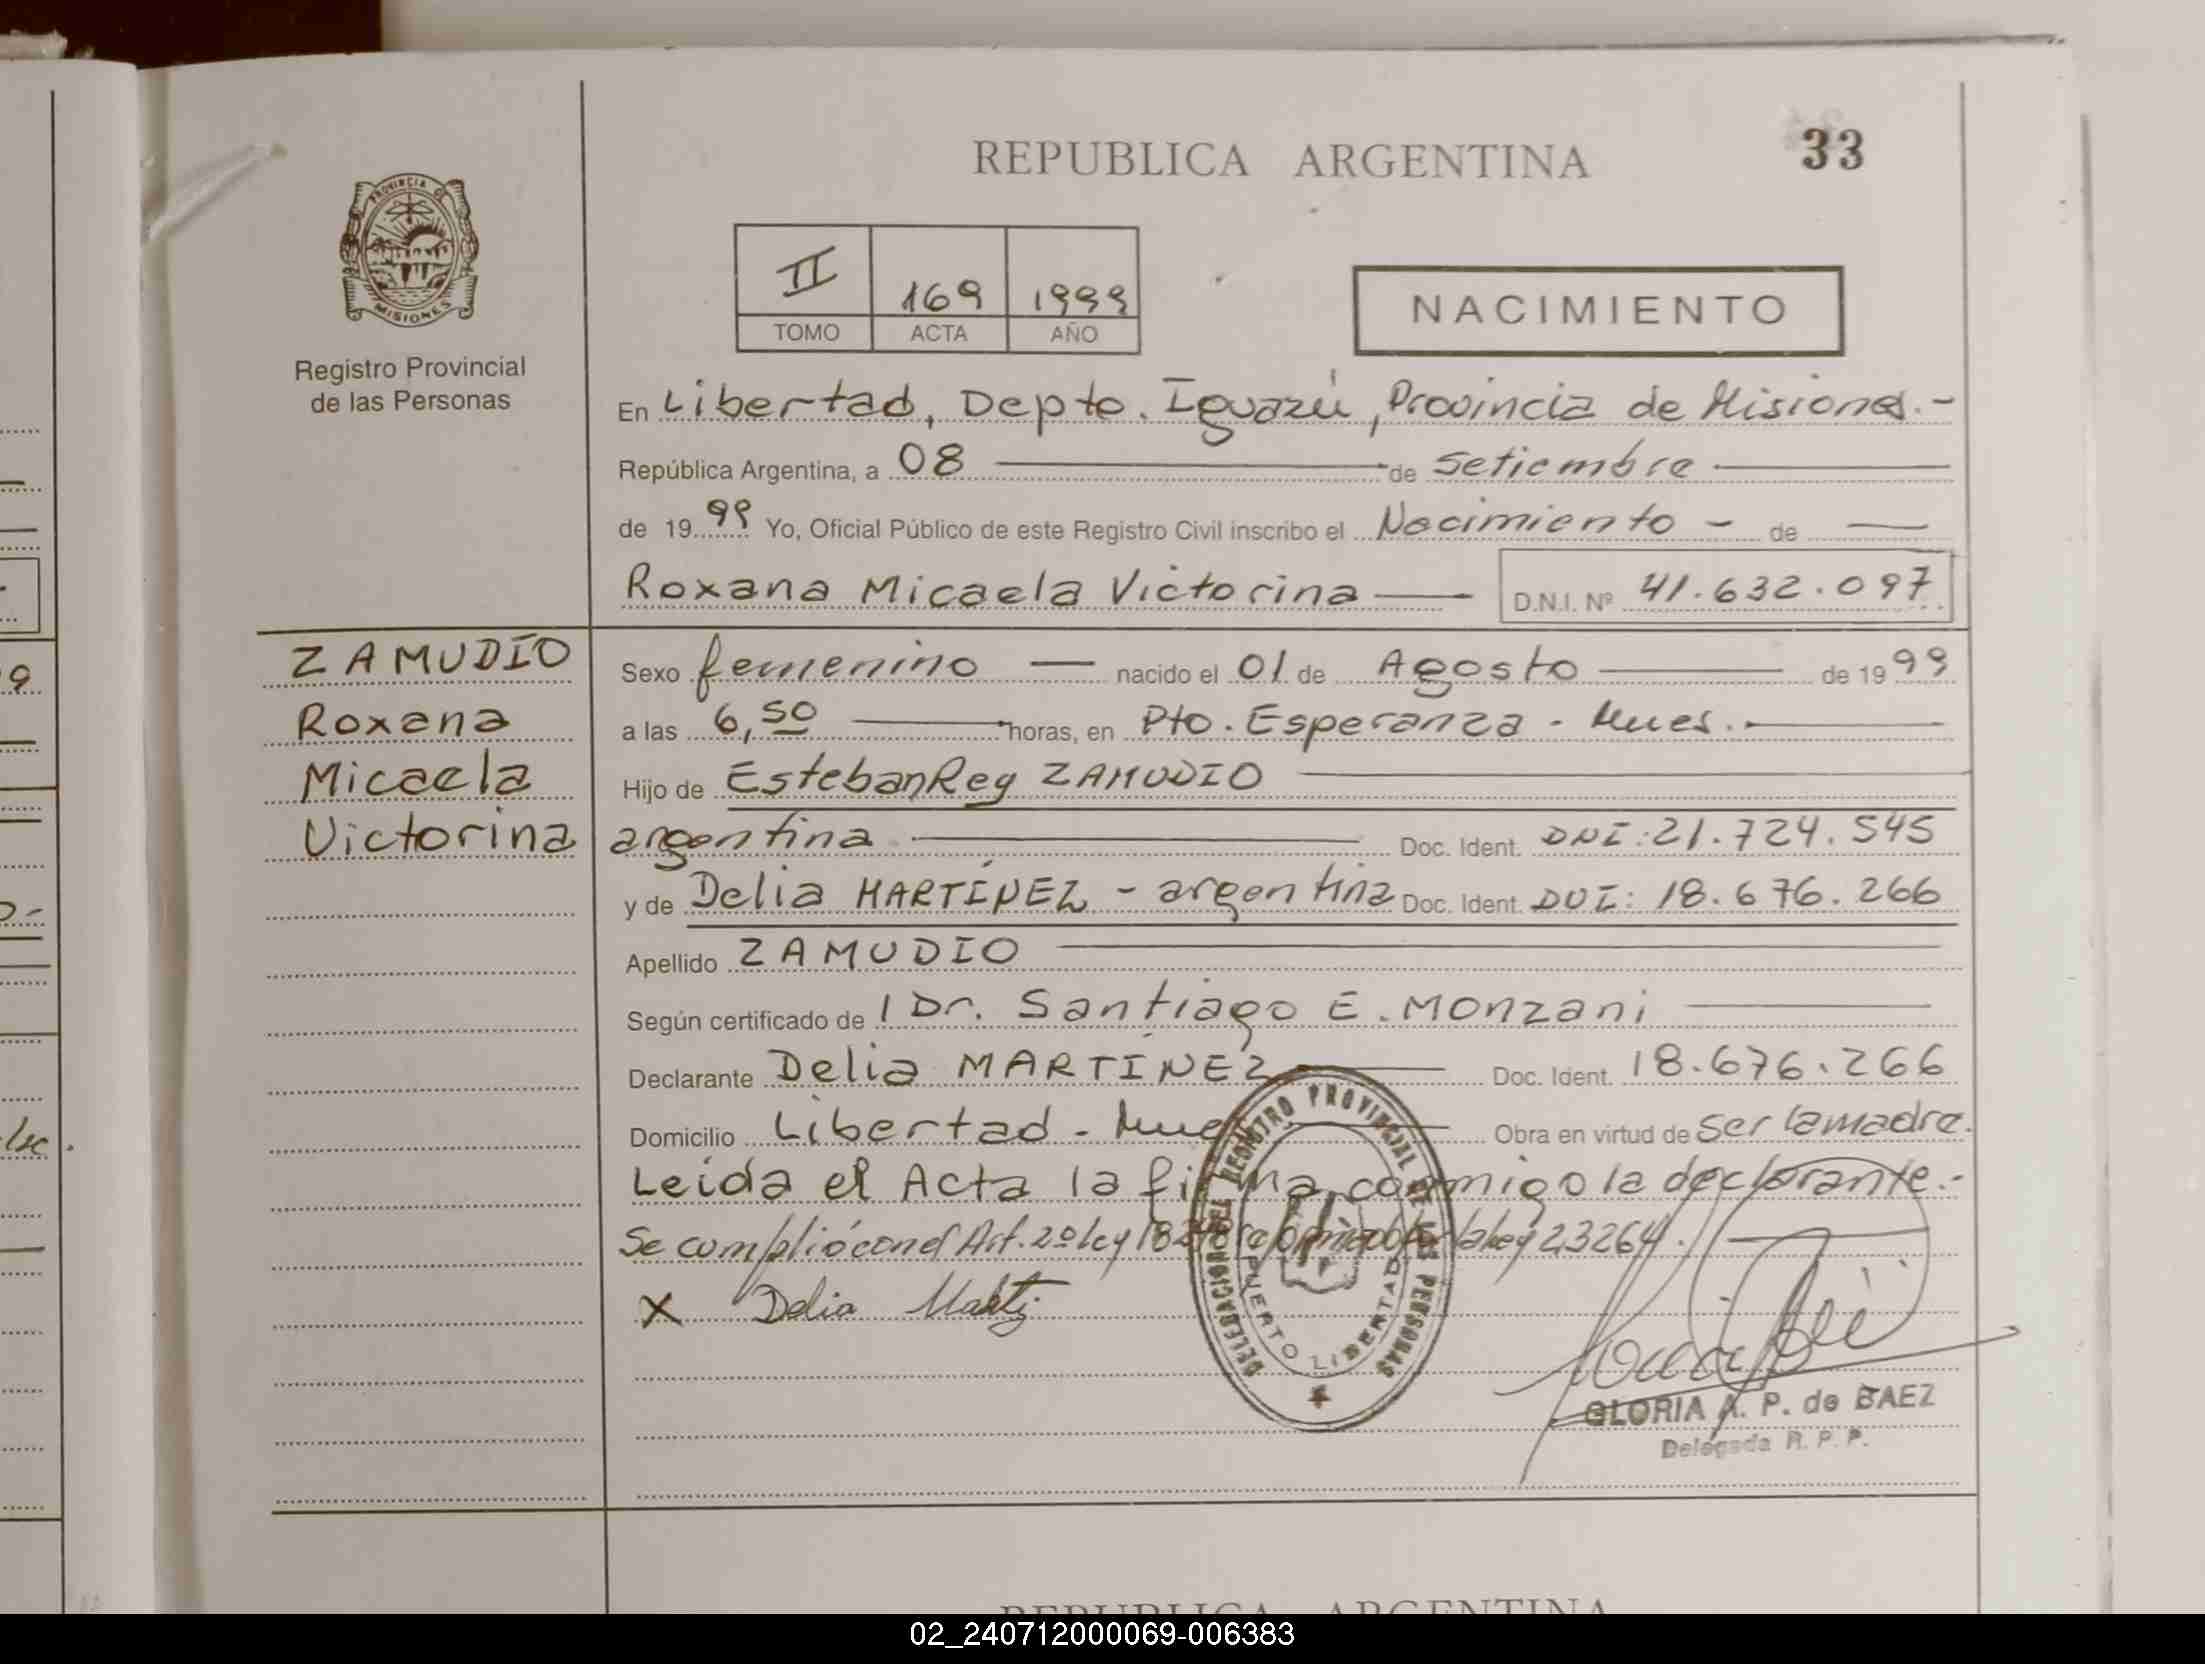 REPUBLICA ARGENTINA 33
PROVINCIA DE
MISIONES
Registro Provincial
de las Personas
II 169 1999
TOMO ACTA AÑO
NACIMIENTO
En Libertad, Depto. Iguazú, Provincia de Misiones.-
República Argentina, a 08 de Setiembre
de 1999 Yo, Oficial Público de este Registro Civil inscribo el Nacimiento - de
Roxana Micaela Victorina D.N.I. Nº 41.632.097
ZAMUDIO
Roxana
Micaela
Victorina
Sexo femenino nacido el 01 de Agosto de 1999
a las 6,50 horas, en Pto. Esperanza - Mnes.
Hijo de Esteban Rey ZAMUDIO
argentina Doc. Ident. DNI: 21.724.545
y de Delia MARTÍNEZ - argentina Doc. Ident. DNI: 18.676.266
Apellido ZAMUDIO
Según certificado de l Dr. Santiago E. Monzani
Declarante Delia MARTÍNEZ Doc. Ident. 18.676.266
Domicilio Libertad - Mnes Obra en virtud de ser la madre.
Leída el Acta la firma conmigo la declarante.-
Se cumplió con el Art. 2º ley 18248 reformado por la ley 23264.
X Delia Martz
DELEGACION DEL REGISTRO PROVINCIAL DE LAS PERSONAS
PUERTO LIBERTAD
GLORIA A. P. de BAEZ
Delegada R. P. P.
REPUBLICA ARGENTINA
02_240712000069-006383